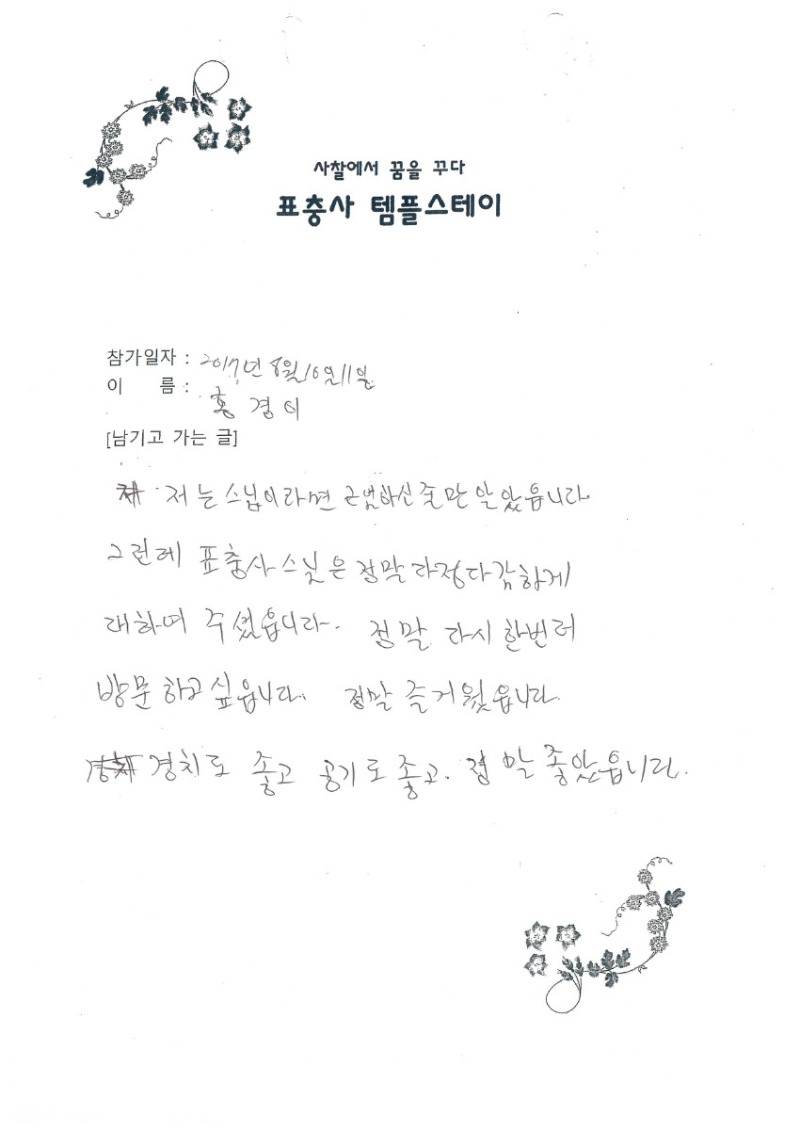 사찰에서 꿈을 꾸다
표충사 템플스테이
참가일자 : 2017년 8월 10일 11일
이 름 : 홍경이
[남기고 가는 글]
저는 스님이라면 근엄하신 줄만 알았읍니다
그런데 표충사 스님은 정말 다정다감하게
대하여 주셨읍니다. 정말 다시 한번더
방문하고 싶읍니다. 정말 즐거웠읍니다.
경치도 좋고 공기도 좋고. 정말 좋았읍니다.